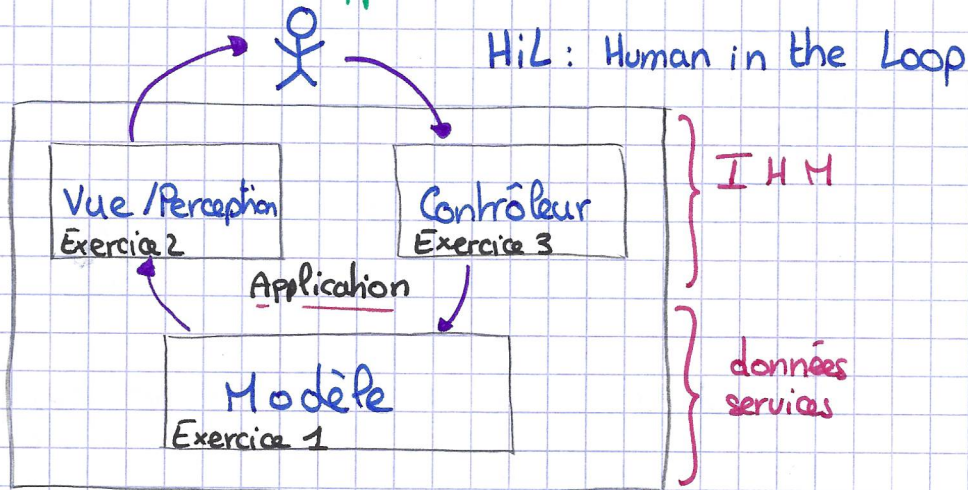 HiL : Human in the Loop
Vue/Perception
Exercice 2
Contrôleur
Exercice 3
IHM
Application
Modèle
Exercice 1
données
services